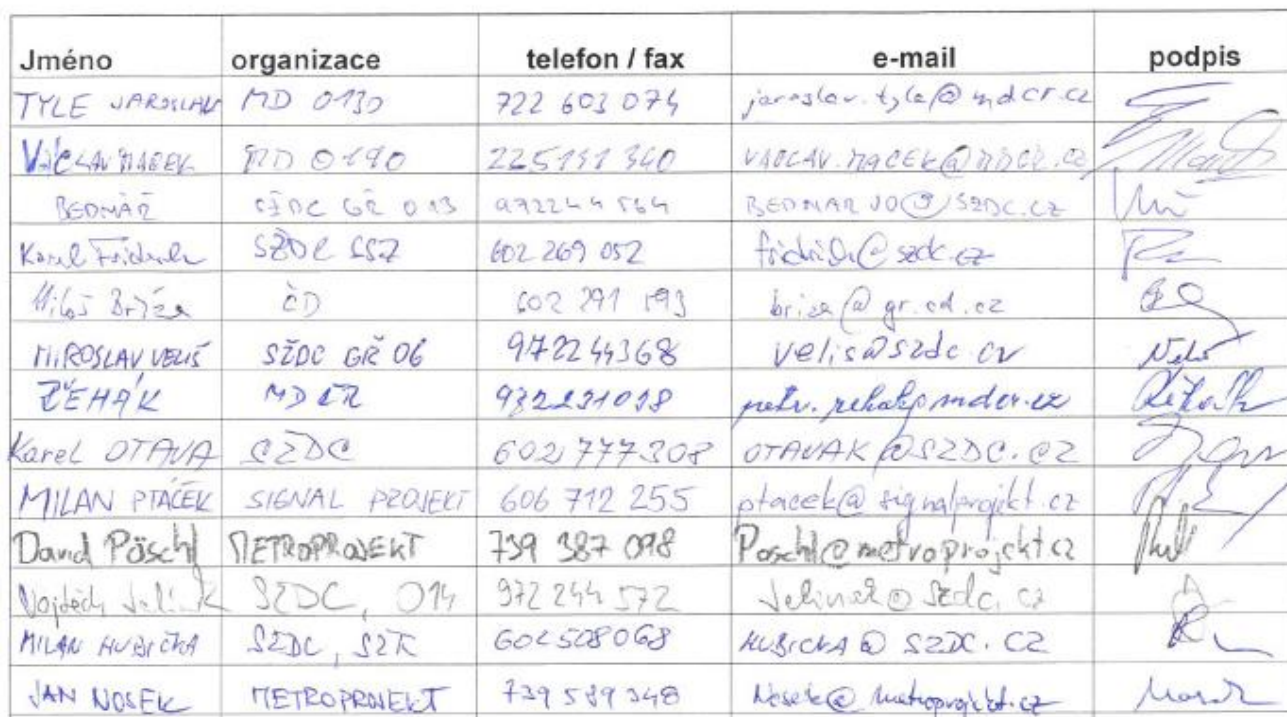 Jméno organizace telefon / fax e-mail podpis
TYLE JAROSLAV MD 0130 722 603 074 jaroslav.tyle@mdcr.cz
VÁCLAV MACEK MD 0190 225131340 VACLAV.MACEK@MDCR.CZ
BEDNÁŘ SŽDC GŘ 013 972244564 BEDNARJO@SZDC.CZ
Karel Fridrich SŽDC SSZ 602 269 052 fridrich@szdc.cz
Miloš Bříza ČD 602 291 193 briza@gr.cd.cz
MIROSLAV VELIŠ SŽDC GŘ 06 972244368 velis@szdc.cz
ŘEHÁK MD ČR 972231018 petr.rehak@mdcr.cz
Karel OTAVA SŽDC 602777308 OTAVAK@SZDC.CZ
MILAN PTÁČEK SIGNAL PROJEKT 606 712 255 ptacek@signalprojekt.cz
David Pöschl METROPROJEKT 739 387 098 Poschl@metroprojekt.cz
Vojtěch Jelínek SŽDC, O14 972 244 572 Jelinek@szdc.cz
MILAN HUBIČKA SŽDC, 602508068 HUBICKA@SZDC.CZ
JAN NOSEK METROPROJEKT 739 589 348 Nosek@metroprojekt.cz